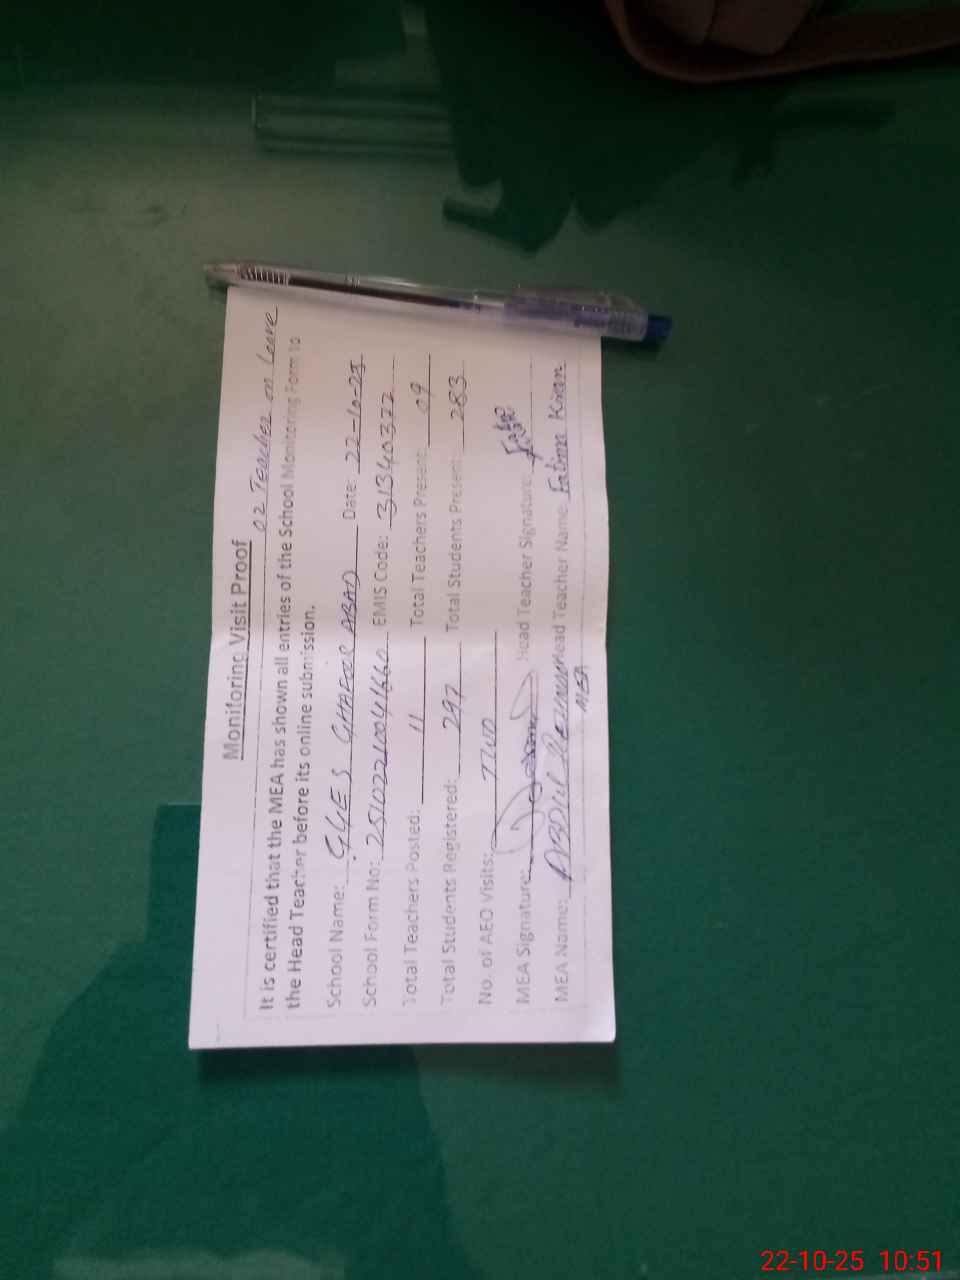 Monitoring Visit Proof
02 Teacher on Leave
It is certified that the MEA has shown all entries of the School Monitoring Form to
the Head Teacher before its online submission.
School Name: GGES GHAFOOR ABAD Date: 22-10-25
School Form No: 25102210041660 EMIS Code: 31340372
Total Teachers Posted: 11 Total Teachers Present: 09
Total Students Registered: 297 Total Students Present: 283
No. of AEO Visits: TWO
MEA Signature: Head Teacher Signature:
MEA Name: ABDUL REHMAN Head Teacher Name: Fatima Kiran
MEA
22-10-25 10:51